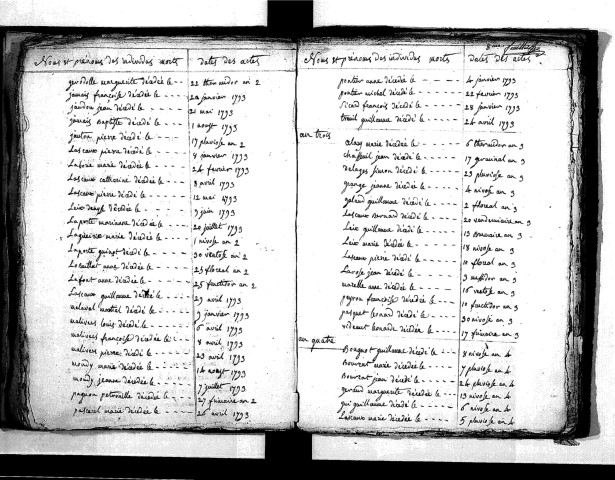 Noms et prénoms des individus morts dates des actes
gerodolle marguerite décédée le 22 thermidor an 2
jamais françoise décédée le 20 janvier 1793
jardou jean décédé le 21 mai 1793
jamais Baptiste décédé le 1 aoust 1793
jauton pierre décédé le 17 pluviose an 2
Lascaux pierre décédé le 8 janvier 1793
Laborie marie décédée le 24 fevrier 1793
Lascaux catherine décédée le 8 avril 1793
Lascaux pierre décédé le 12 mai 1793
Leix décédée le 9 juin 1793
Laporte marianne décédée le 20 juillet 1793
marie décédée le 1 nivose an 2
Laporte décédé le 30 ventose an 2
anne décédée le 23 floreal an 2
Lafont anne décédée le 25 fructidor an 2
Lascaux guillaume décédé le 29 avril 1793
malaval martial décédé le 9 janvier 1793
malivers louis décédé le 6 avril 1793
malivers françoise décédée le 8 avril 1793
malivers pierre décédé le 23 avril 1793
moudy marie décédée le 14 aoust 1793
moudy jeanne décédée le 7 juillet 1793
pagnon petronille décédée le 27 frimaire an 2
pascarel marie décédée le 26 avril 1793
Noms et prénoms des individus morts dates des actes
pontier anne décédée le 4 janvier 1793
pontier michel décédé le 22 fevrier 1793
Sicard françois décédé le 28 janvier 1793
treuil guillaume décédé le 26 avril 1793
an trois
marie décédée le 6 thermidor an 3
jean décédé le 17 germinal an 3
delages simon décédé le 23 pluviose an 3
grange jeanne décédée le 4 nivose an 3
guillaume décédé le 2 floreal an 3
Lascaux bernard décédé le 20 vendemiaire an 3
Leix guillaume décédé le 13 brumaire an 3
Leix marie décédée le 18 nivose an 3
Lascaux pierre décédé le 10 floreal an 3
Larose jean décédé le 3 messidor an 3
mazelle anne décédée le 16 ventose an 3
peyrou françoise décédée le 10 fructidor an 3
pasquet leonard décédé le 30 nivose an 3
leonarde décédée le 17 frimaire an 3
an quatre
guillaume décédé le 8 nivose an 4
Bourzat marie décédée le 7 pluviose an 4
Bourzat jean décédé le 24 pluviose an 4
geraud marguerite décédée le 13 nivose an 4
guillaume décédé le 6 nivose an 4
Lascaux marie décédée le 5 pluviose an 4